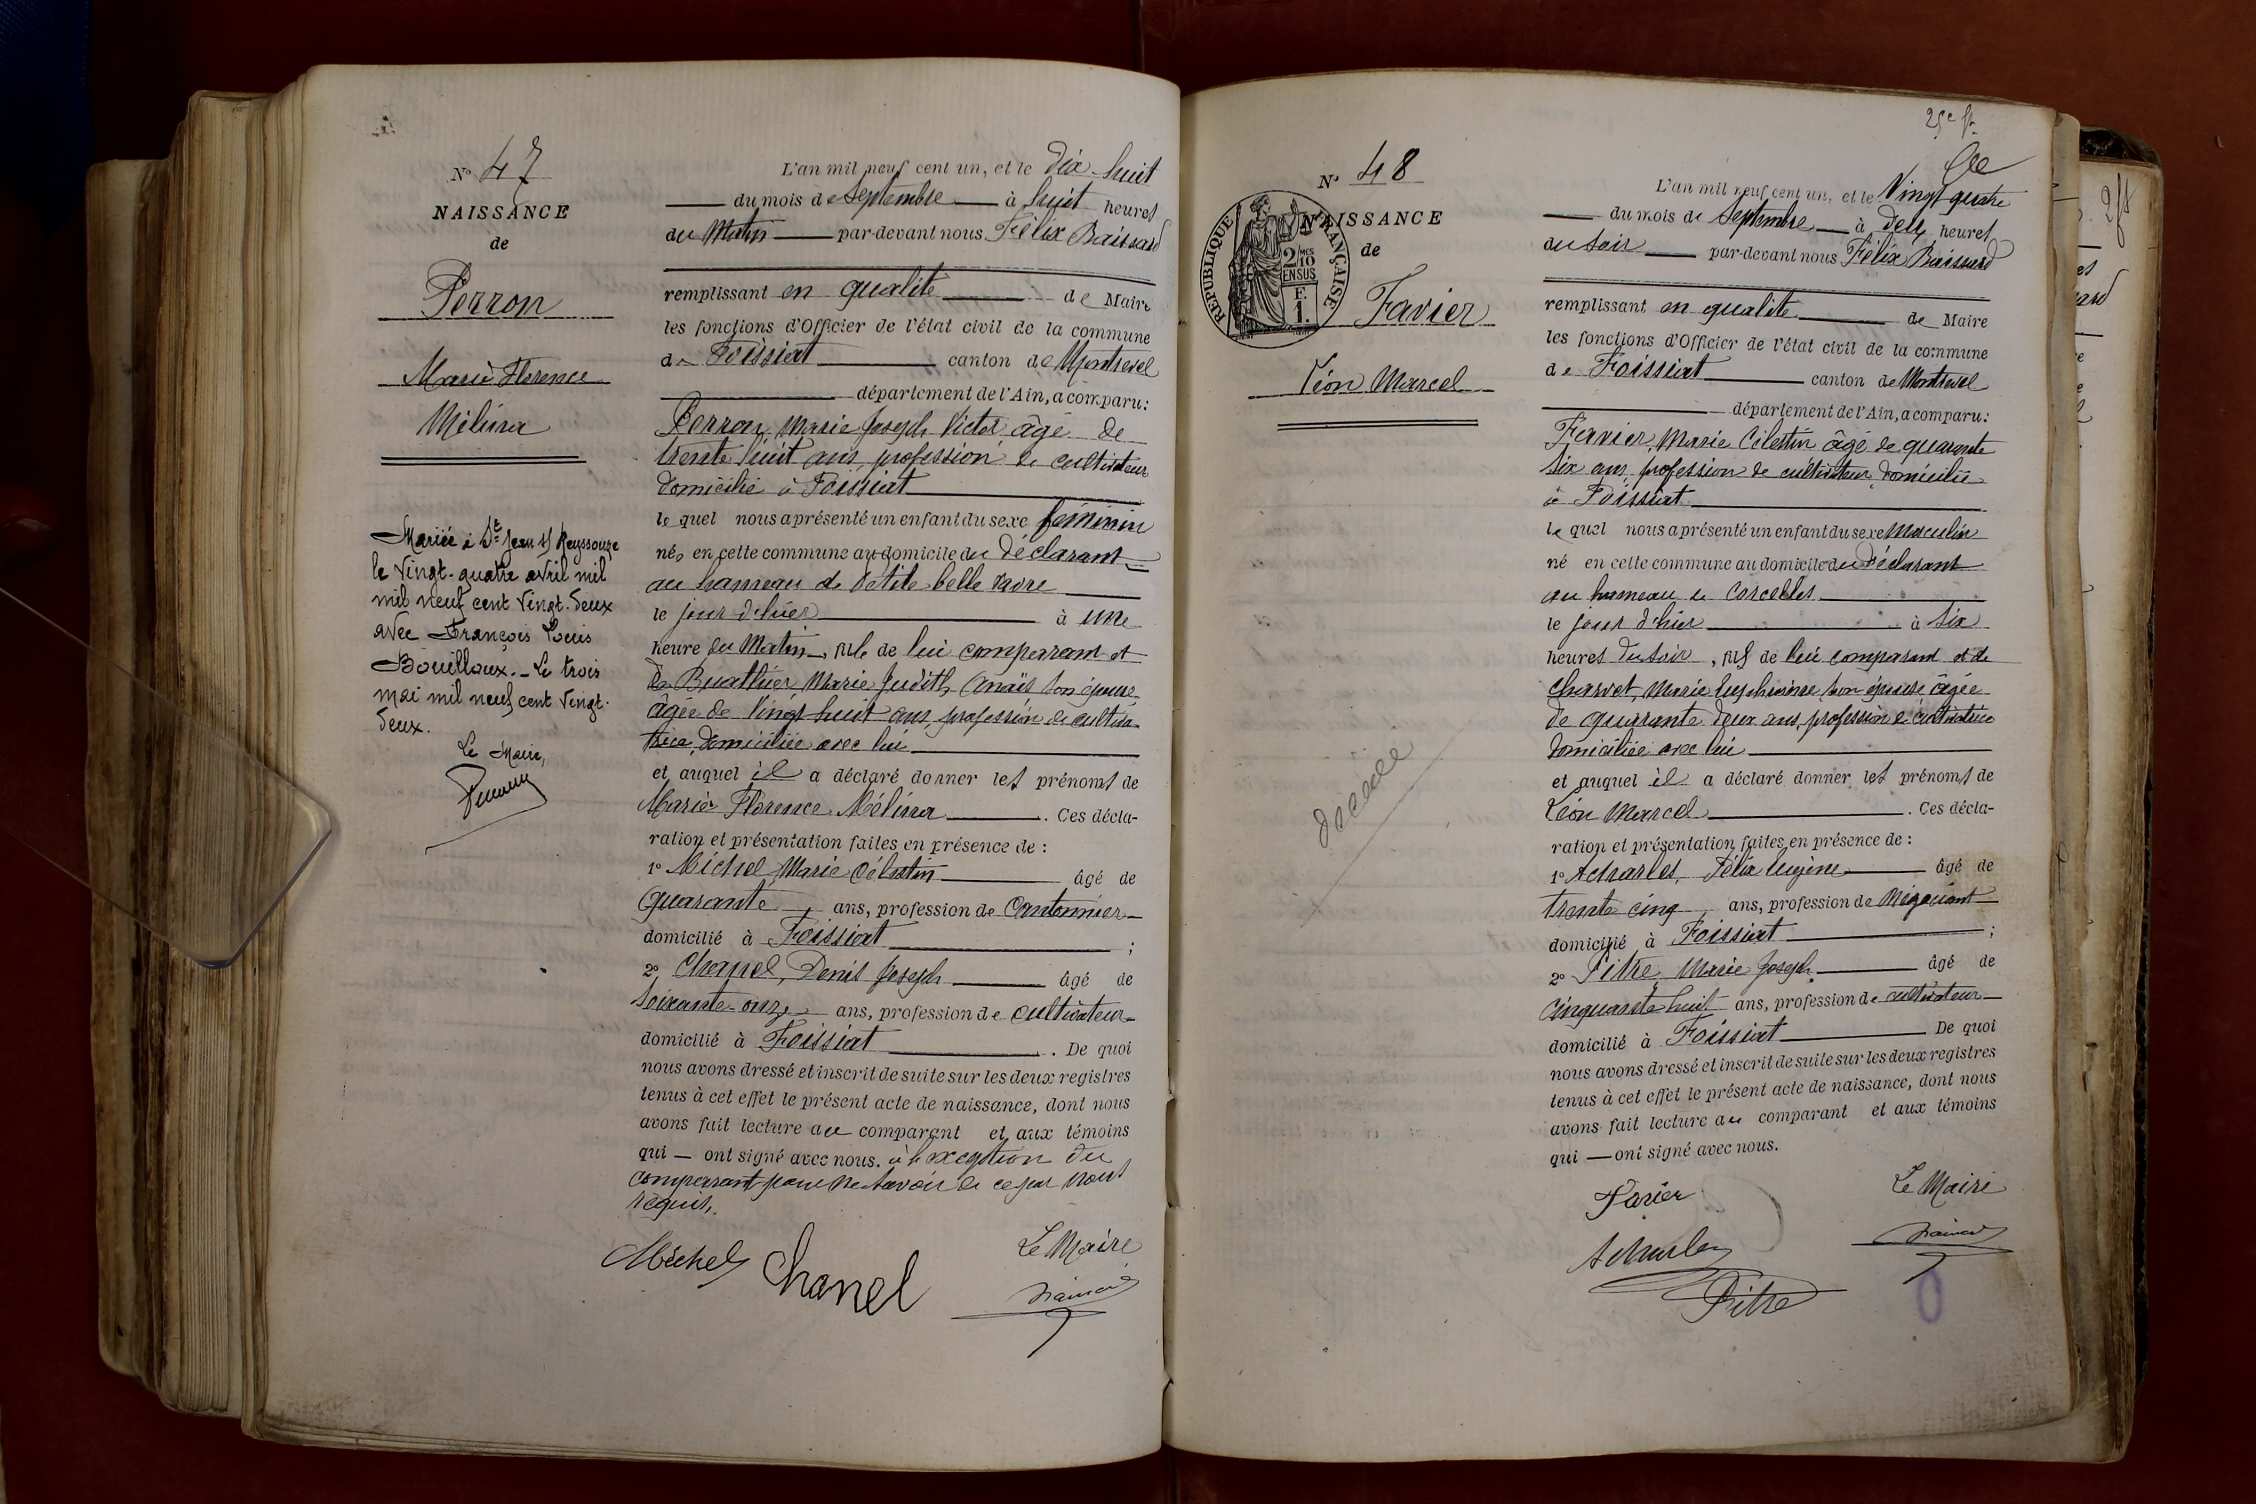 N° 47
NAISSANCE
de
Perron
Marie Florence
Mélina
Mariée à St Jean s/ Reyssouze
le vingt-quatre avril mil
mil neuf cent vingt-deux
avec François Louis
Bouilloux. - Le trois
mai mil neuf cent vingt-
deux.
Le Maire,
L'an mil neuf cent un, et le dix-huit
du mois de Septembre à huit heures
du Matin par-devant nous Félix Baissard
remplissant en qualité de Maire
les fonctions d'Officier de l'état civil de la commune
de Foissiat canton de Montrevel
département de l'Ain, a comparu:
Perron, Marie Joseph Victor âgé de
trente huit ans, profession de cultivateur
domicilié à Foissiat
lequel nous a présenté un enfant du sexe féminin
née en cette commune au domicile du déclarant
au hameau de Petite belle
le jour d'hier à une
heure du Matin, fille de lui comparant et
de Buathier, Marie Judith Anaïs son épouse
âgée de vingt huit ans, profession de cultiva-
trice, domiciliée avec lui
et auquel il a déclaré donner les prénoms de
Marie Florence Mélina. Ces décla-
ration et présentation faites en présence de :
1° Michel, Marie Célestin âgé de
quarante ans, profession de Cantonnier
domicilié à Foissiat ;
2° Chanel, Denis Joseph âgé de
soixante-onze ans, profession de cultivateur
domicilié à Foissiat. De quoi
nous avons dressé et inscrit de suite sur les deux registres
tenus à cet effet le présent acte de naissance, dont nous
avons fait lecture au comparant et aux témoins
qui — ont signé avec nous. à l'exception du
comparant pour ne savoir de ce par nous
requis.
Michel Chanel
Le Maire
Baissard
25e ft
N° 48
NAISSANCE
de
REPUBLIQUE FRANÇAISE
2/10 MES
EN SUS
F.
1.
Favier
Léon Marcel
décédé
L'an mil neuf cent un, et le Vingt quatre
du mois de Septembre à deux heures
du soir par-devant nous Félix Baissard
remplissant en qualité de Maire
les fonctions d'Officier de l'état civil de la commune
de Foissiat canton de Montrevel
département de l'Ain, a comparu:
Favier, Marie Célestin âgé de quarante
six ans, profession de cultivateur, domicilié
à Foissiat
lequel nous a présenté un enfant du sexe Masculin
né en cette commune au domicile du Déclarant
au hameau de Corcelles
le jour d'hier à six
heures du soir, fils de lui comparant et de
Charvet, Marie son épouse âgée
de quarante deux ans, profession de cultivatrice
domiciliée avec lui
et auquel il a déclaré donner les prénoms de
Léon Marcel. Ces décla-
ration et présentation faites en présence de :
1° Acharles, Félix Eugène âgé de
trente cinq ans, profession de Négociant
domicilié à Foissiat ;
2° Pitre, Marie Joseph âgé de
cinquante huit ans, profession de cultivateur
domicilié à Foissiat De quoi
nous avons dressé et inscrit de suite sur les deux registres
tenus à cet effet le présent acte de naissance, dont nous
avons fait lecture au comparant et aux témoins
qui — ont signé avec nous.
Favier
Le Maire
Acharles
Baissard
Pitre